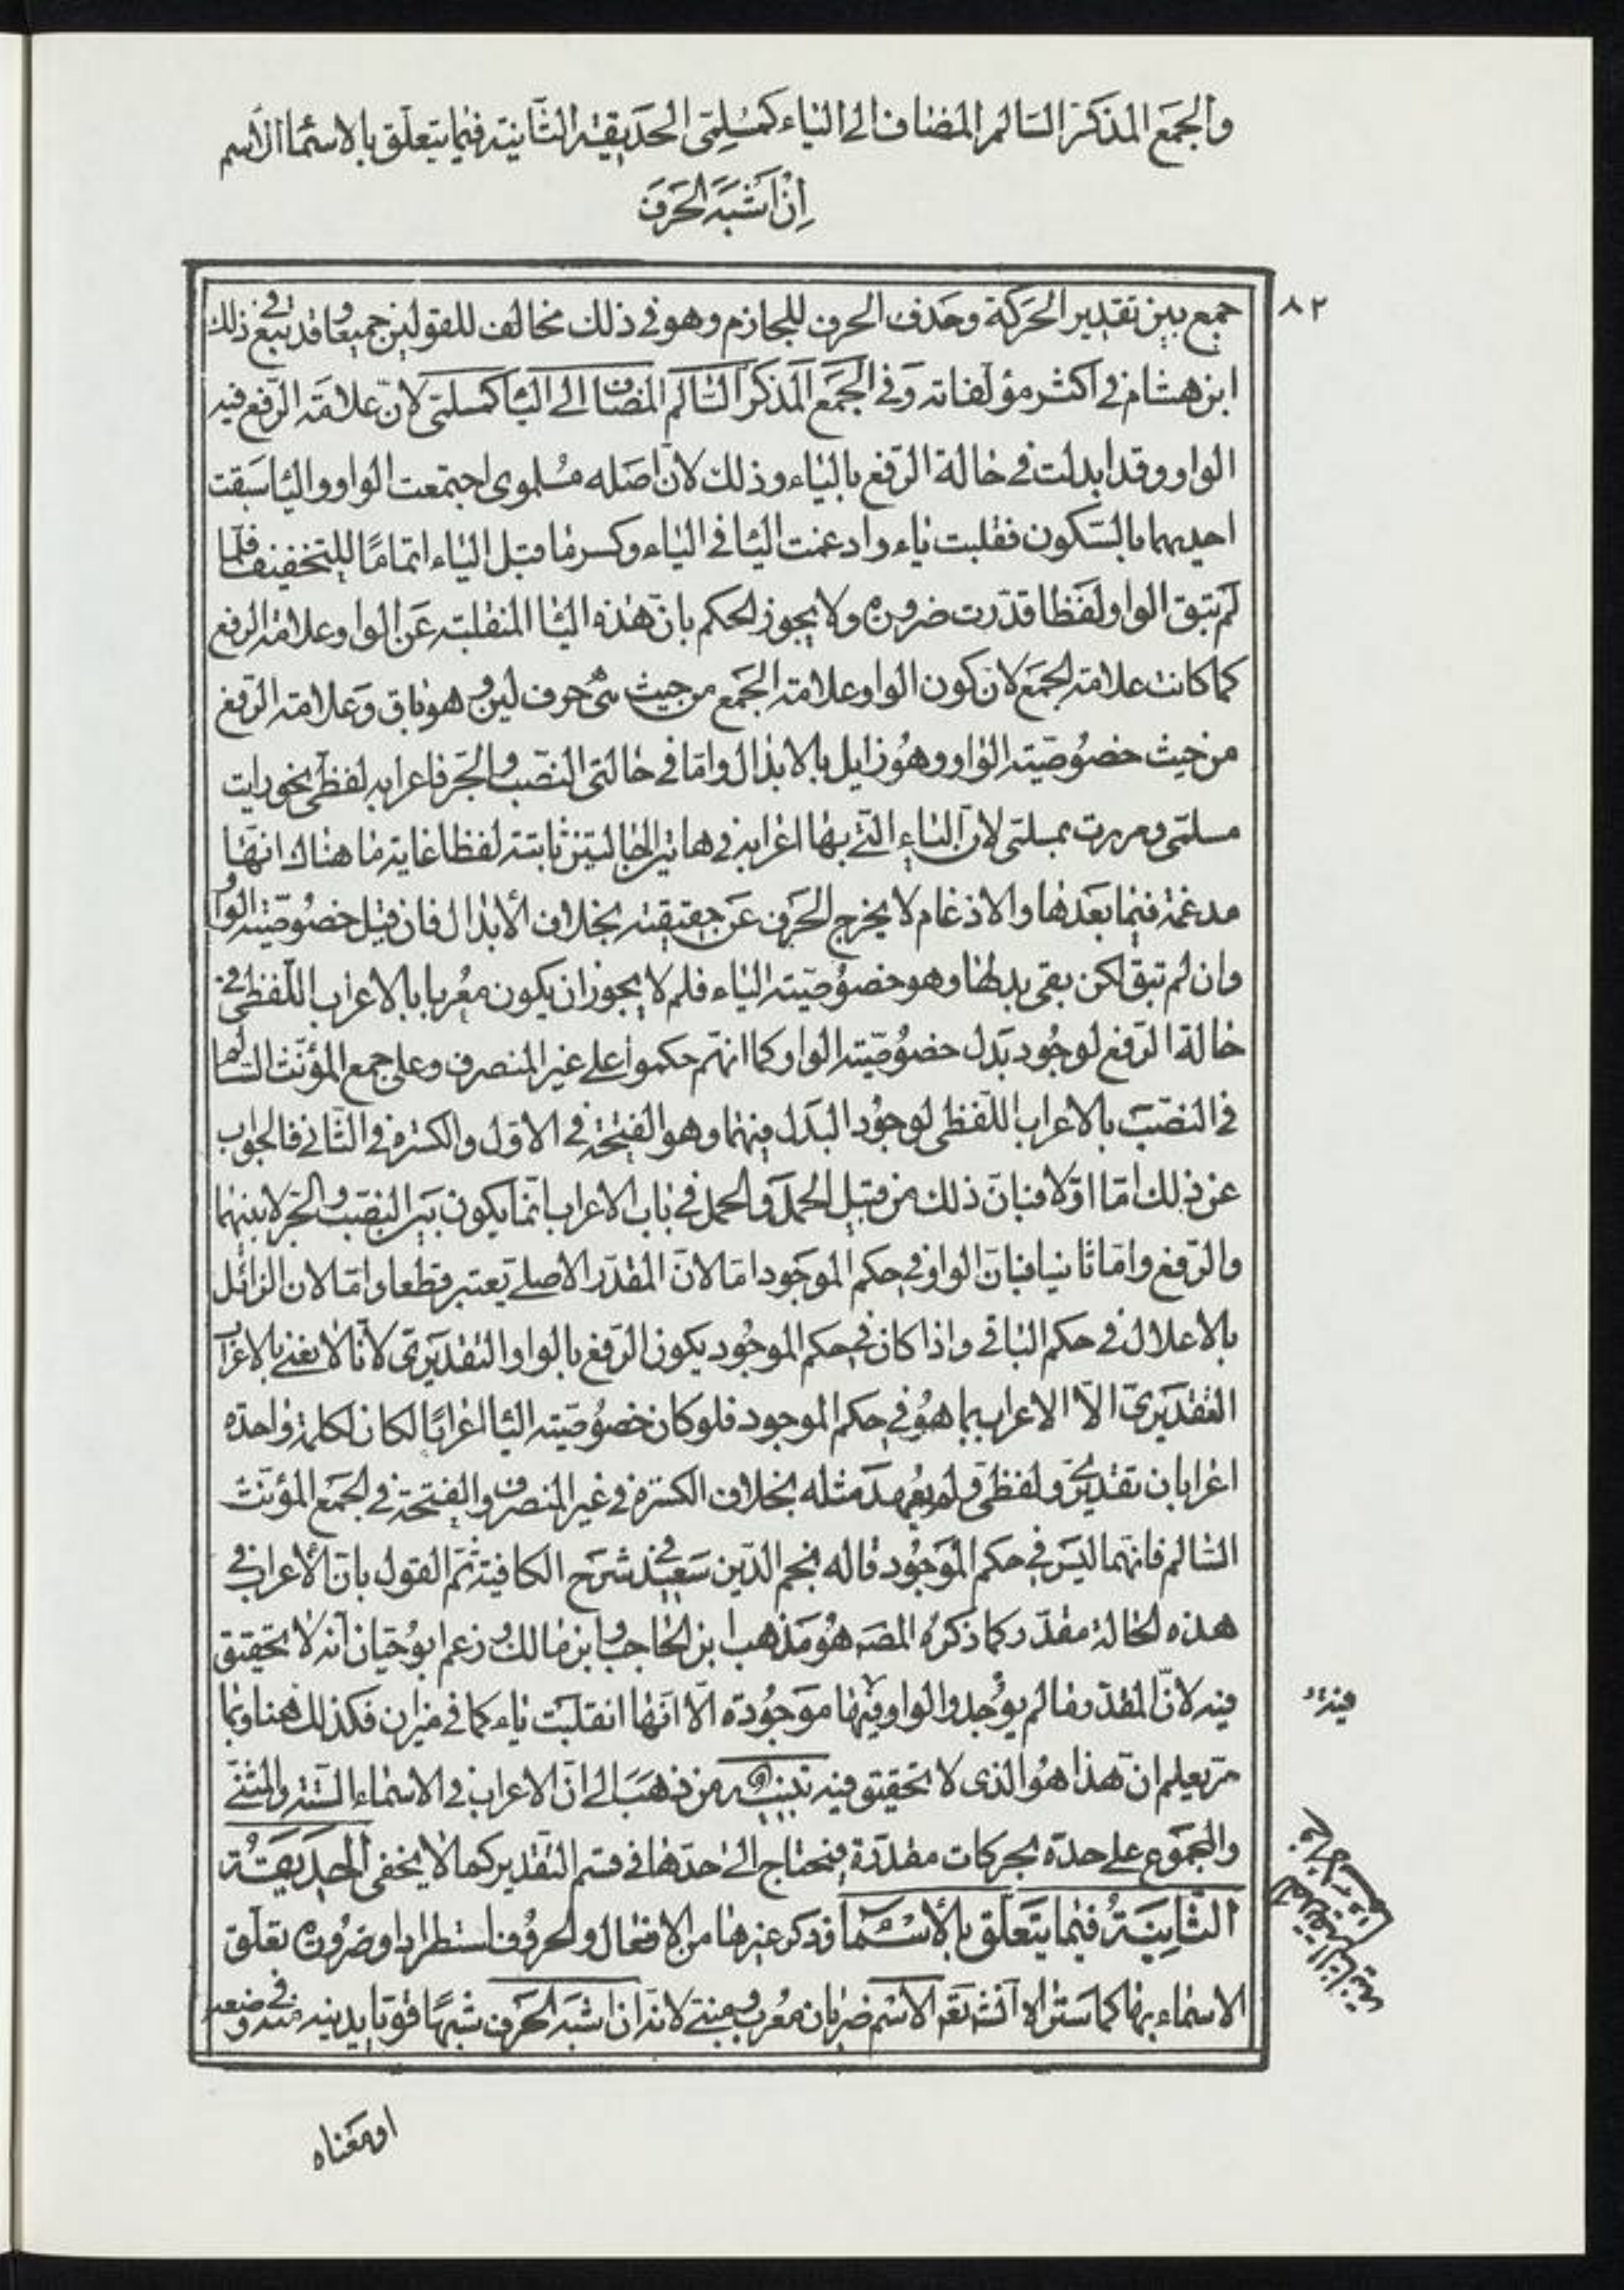 والجمع المذكر السالم المضاف الى الياء كمسلمي الحديقة الثانية فيما يتعلق بالاسماء الاسم
ان اشبه الحرف
٨٢
جمع بين تقدير الحركة وحذف الحرف للجازم وهو في ذلك مخالف للقولين جميعا وقد تبع في ذلك
ابن هشام في اكثر مؤلفاته وفي الجمع المذكر السالم المضاف الى اليا كمسلمي لان علامة الرفع فيه
الواو وقد ابدلت في حالة الرفع بالياء وذلك لان اصله مسلموى اجتمعت الواو واليا سبقت
احديهما بالسكون فقلبت ياء وادغمت اليا في الياء وكسر ما قبل الياء اتماما للتخفيف فلما
لم تبق الواو لفظا قدرت ضرورة ولا يجوز الحكم بان هذه اليا المنقلبة عن الواو علامة الرفع
كما كانت علامة الجمع لان كون الواو علامة الجمع من حيث هي حرف لين وهو باق وعلامة الرفع
من حيث خصوصية الواو وهو زايل بالابدال واما في حالتي النصب والجر فاعرابه لفظي نحو رايت
مسلمي ومررت بمسلمي لان الياء التي بها اعرابه في هاتين الحالتين ثابتة لفظا غاية ما هناك انها
مدغمة فيما بعدها والادغام لا يخرج الحرف عن حقيقته بخلاف الابدال فان قيل خصوصية الواو
وان لم تبق لكن بقى بدلها وهو خصوصية الياء فلم لا يجوز ان يكون معربا بالاعراب اللفظي في
حالة الرفع لوجود بدل خصوصية الواو كما انهم حكموا على غير المنصرف وعلى جمع المؤنث السالم
في النصب بالاعراب اللفظي لوجود البدل فيهما وهو الفتحة في الاول والكسرة في الثاني فالجواب
عن ذلك اما اولا فبان ذلك من قبيل الحمل والحمل في باب الاعراب انما يكون بين النصب والجر لا بينهما
والرفع واما ثانيا فبان الواو في حكم الموجود اما لان المقدر الاصلي يعتبر قطعا واما لان الزائل
بالاعلال في حكم الباقي واذا كان في حكم الموجود يكون الرفع بالواو التقديري لانا لا نعني بالاعراب
التقديري الا الاعراب بما هو في حكم الموجود فلو كان خصوصية اليا اعرابا لكان لكلمة واحدة
اعرابان تقديري ولفظي ولم يعهد مثله بخلاف الكسرة في غير المنصرف والفتحة في الجمع المؤنث
السالم فانهما ليس في حكم الموجود قاله نجم الدين سعيد في شرح الكافية ثم القول بان الاعراب في
هذه الحالة مقدر كما ذكره المصـ هو مذهب ابن الحاجب وابن مالك وزعم ابو حيان انه لا تحقيق
فيه لان المقدر ما لم يوجد والواو فيها موجودة الا انها انقلبت ياء كما في ميزان فكذلك هنا وبما
مر يعلم ان هذا هو الذى لا تحقيق فيه تنبيه من ذهب الى ان الاعراب في الاسماء الستة والمثنى
والمجموع على حده بحركات مقدرة فيحتاج الى احدها في قسم التقدير كما لا يخفى الحديقة
الثانية فيما يتعلق بالاسما وذكر غيرها من الافعال والحروف استطراد او ضرورة تعلق
الاسماء بها كما ستراه انشـ تعـ الاسم ضربان معرب ومبني لانه ان اشبه الحرف شبها قويا يدنيه منه في وضعه
فيه
او معناه